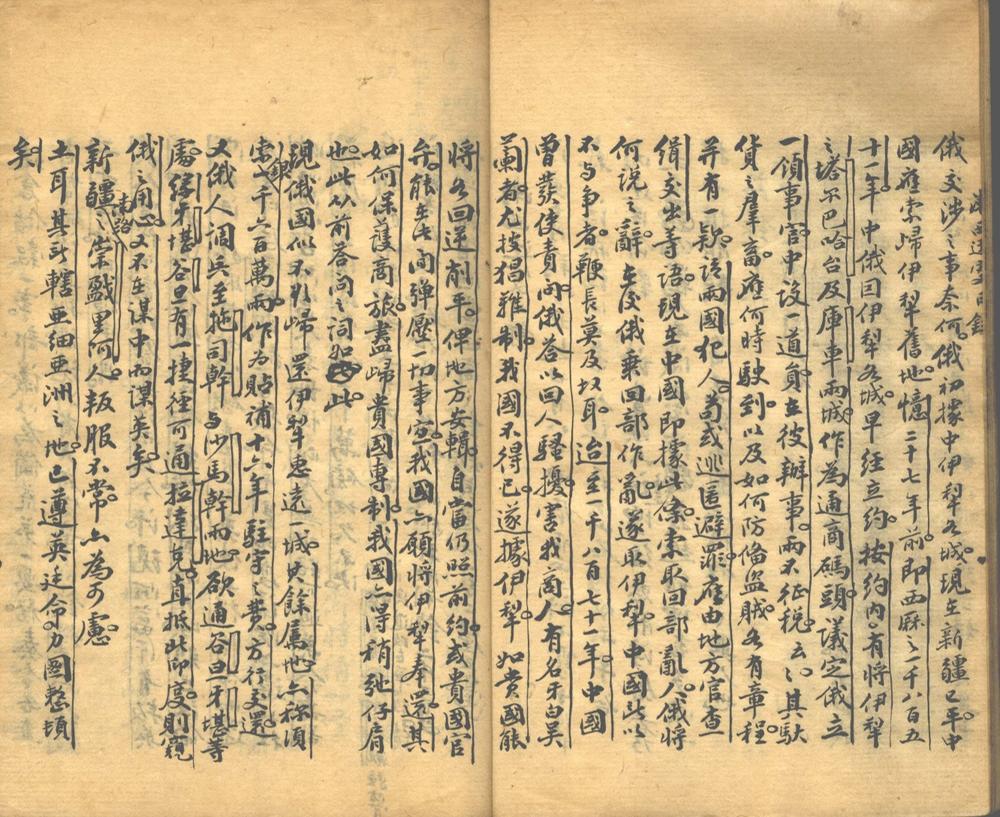 俄交涉之事奈何俄初據中伊犁各城現在新疆已平中
國應索歸伊犁舊地憶二十七年前即西厤一千八百五
十一年中俄因伊犁各城早經立約按約內有將伊犁
之塔尔巴哈台及庫車兩城作為通商碼頭議定俄立
一領事官中設一道員立彼辦事兩不征稅云云其馱
貨之羣畜應何時駛到以及如何防備盜賊各有章程
并有一款註兩國犯人苟或逃匿避罪應由地方官查
緝交出等語現在中國即據此條索取回部亂人俄將
何說之辭立後俄乘回部作亂遂取伊犁中國此以
不与爭者鞭長莫及奴耳迨至一千八百七十一年中國
曾發使責问俄答以回人騷擾害我商人有名牙白吴
蘭者尤披猖難制我國不得已遂據伊犁如貴國能
將各回逆削平俾地方安輯自當仍照前約或貴國官
兵能在此间彈壓一切事宜我國亦願將伊犁奉還其
如何保護商旅盡歸貴國專制我國亦得稍弛仔肩
也此以前答问之詞如此
現俄國似不引歸還伊犁惠遠一城其餘属地亦称須
索銀一千六百萬兩作為貼補十六年駐守之費方行交還
又俄人調兵至拖司幹与沙馬幹兩地欲通谷旦牙堪等
處緣牙堪谷旦有一捷徑可通拉達克直抵此印度則窺
俄之用心又不在謀中而謀英矣
新疆之南路崇戲黑何人叛服不常亦為可慮
土耳其所轄亜细亜洲之地已遵英廷命力圖整頓
矣